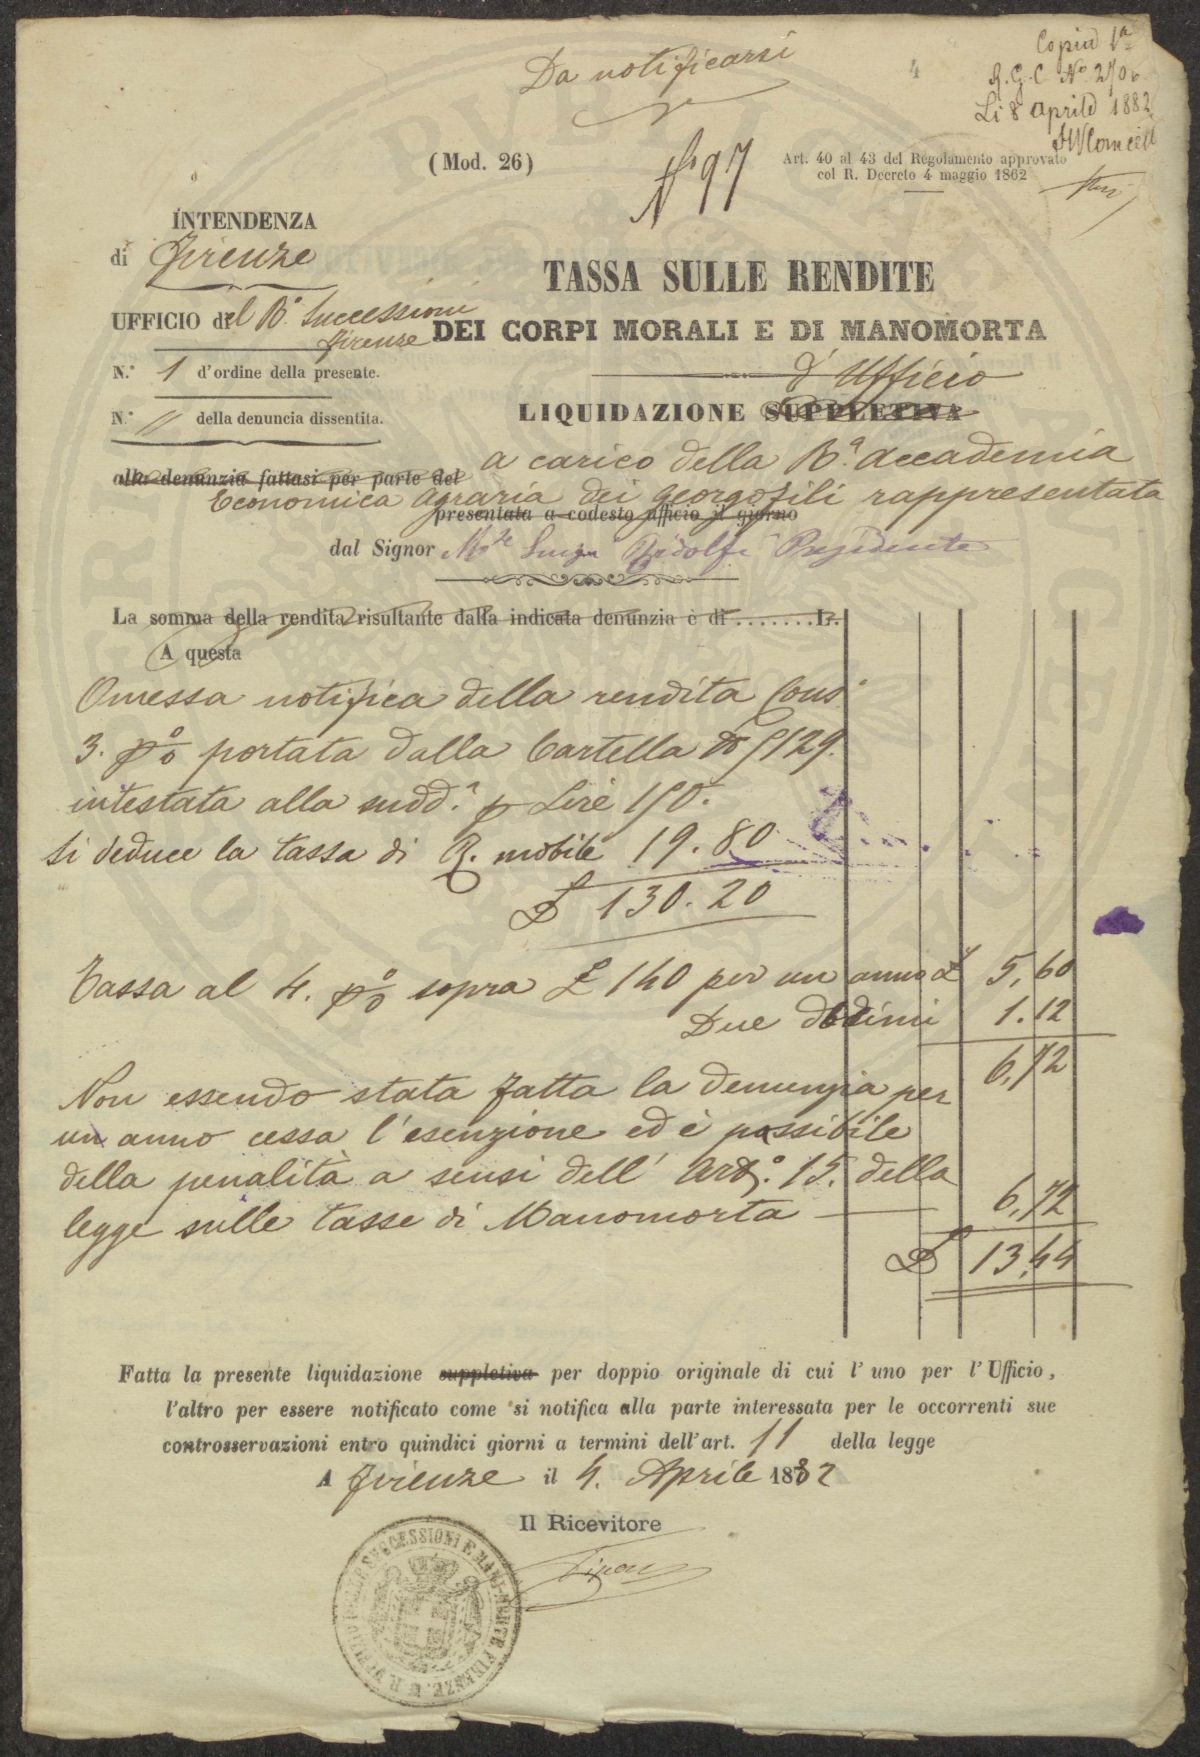 Da notificarsi
4
Copia 1ª
R.G.C. Nº 2706
Li 8 Aprile 1882
(Mod. 26)
Nº 97
Art. 40 al 43 del Regolamento approvato
col R. Decreto 4 maggio 1862
INTENDENZA
di Firenze
UFFICIO del Rº. Successioni
Firenze
N.º 1 d'ordine della presente.
N.º 11 della denuncia dissentita.
TASSA SULLE RENDITE
DEI CORPI MORALI E DI MANOMORTA
d'Ufficio
LIQUIDAZIONE SUPPLETIVA
alla denunzia fattasi per parte del a carico della Rª. Accademia
Economica Agraria dei Georgofili rappresentata
presentata a codesto ufficio il giorno
dal Signor Mse Luigi Ridolfi Presidente
La somma della rendita risultante dalla indicata denunzia è di . . . . . . . L.
A questa
Omessa notifica della rendita Cons.
3. p% portata dalla Cartella 5129.
intestata alla sudd.ª p Lire 150.
Si deduce la tassa di R. mobile 19.80
£ 130.20
Tassa al 4. p% sopra £ 140 per un anno £ 5,60
Due decimi 1.12
6,72
Non essendo stata fatta la denunzia per
un anno cessa l'esenzione ed è passibile
della penalità a sensi dell' Art.º 15. della
legge sulle tasse di Manomorta — 6,72
£ 13,44
Fatta la presente liquidazione suppletiva per doppio originale di cui l'uno per l'Ufficio,
l'altro per essere notificato come si notifica alla parte interessata per le occorrenti sue
controsservazioni entro quindici giorni a termini dell'art. 11 della legge
A Firenze il 4. Aprile 1882
Il Ricevitore